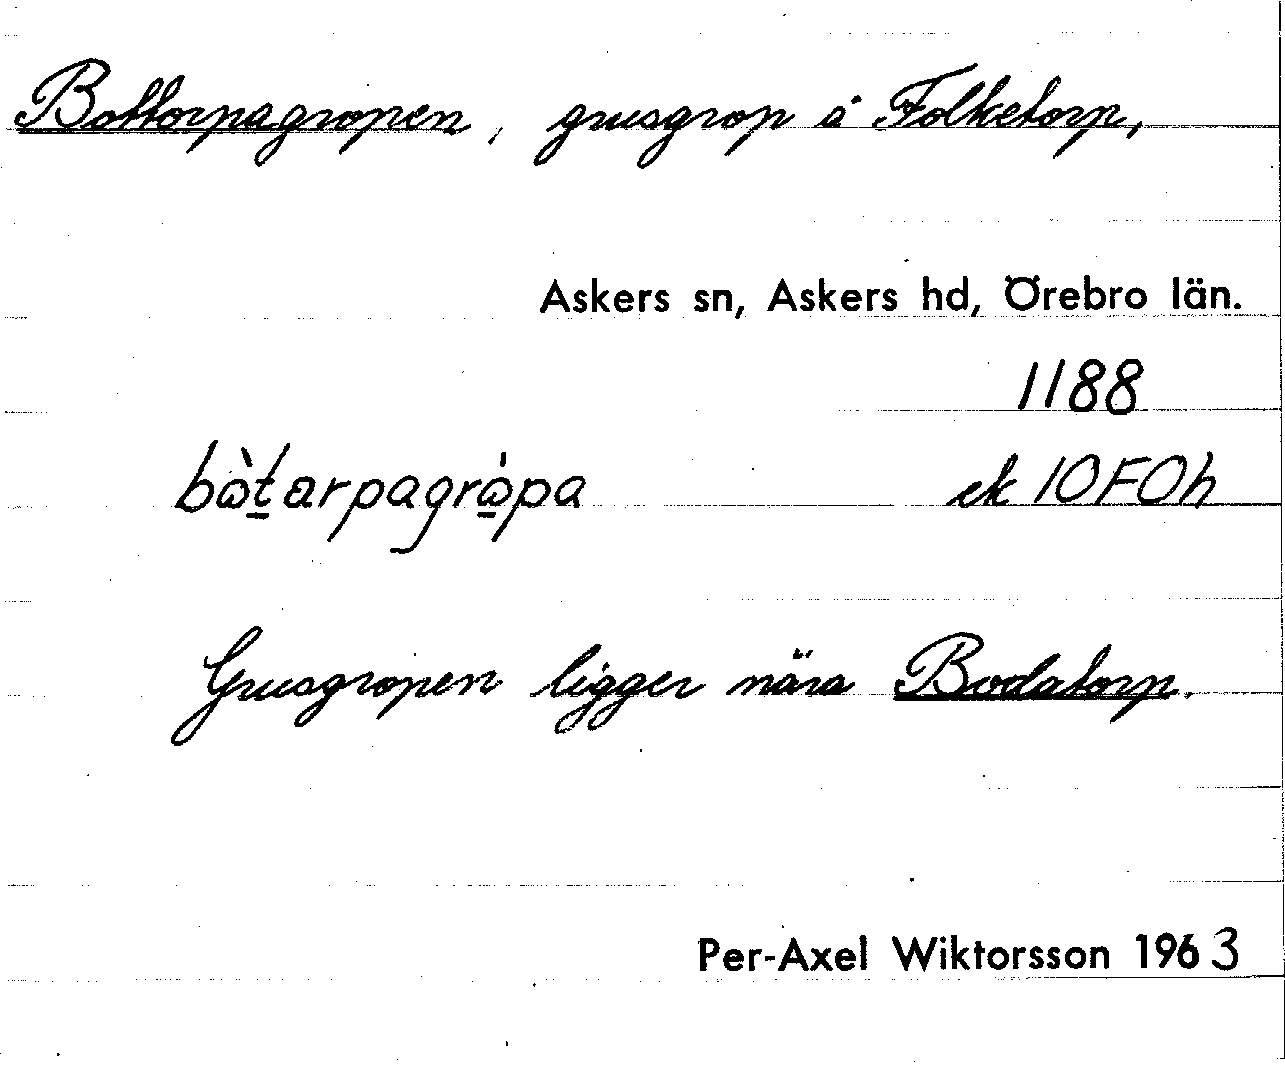 Bottorpagropen, grusgrop å Folketorp,
Askers sn, Askers hd, Örebro län.
1188
bòtarpagròpa ek 10F0h
Grusgropen ligger nära Bodatorp.
Per-Axel Wiktorsson 1963